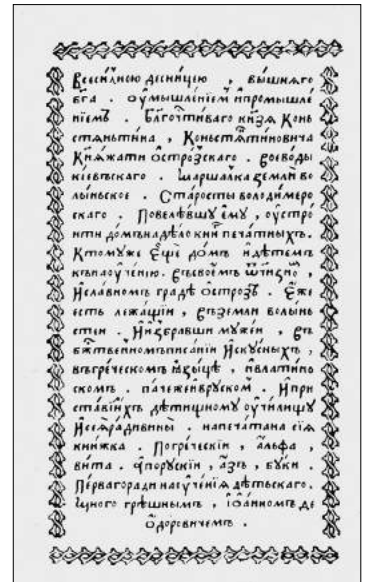 Всеси́лною десни́цею , вы́шняго
бг҃а . оу҆мышле́нїем̾ и҆промышле́
нїемъ . Бл҃гочти́ваго кня́зя Конь
стяньти́на , Коньстянти́новича
Кня́жати Ѻ҆стро́зскаго . воево́ды
кі́евъскаго . маршалка земли во
лы́ньское . Ста́росты володи́меро
скаго . Повеле́вшꙋ є҆мꙋ̀ , оу҆стро́
ити до́мъ на дѣ́ло кни́г печа́тныхъ.
Ктомꙋ́же Є҆щѐ до́мъ и҆ дѣ́темъ
къ наоу҆че́нию . въсвоемъ ѿчи́знѡ ,
И҆сла́вномъ гра́дѣ ѻ҆стро́зѣ . Є҆́же
е́сть лежа́щїи , въземли волы́нь
стеи . И҆и҆збра́вши мꙋже́и , въ
бж҃твенномъ писа́нїи и҆скꙋ́сныхъ ,
въгре́ческомъ ꙗ҆зы́цѣ , и҆влати́но
скомъ . паче́же и҆врꙋ́ском . И҆при
ста́ви и҆́хъ дѣ́тищномꙋ оу҆чи́лищꙋ
И҆сея̀ ра́ди вины̀ . напеча́тана сїѧ̀
кни́жка . Погре́ческїи , а҆́льфа ,
ви́та . а҆порꙋ́скїи , а҆́зъ , бꙋ́ки .
Пе́рваго ради наоу҆че́нїя дѣ́тьскаго.
мно́го грѣ́шнымъ , і҆ѡ҆а́нномъ Ѳе
ѻ҆доровичемъ .